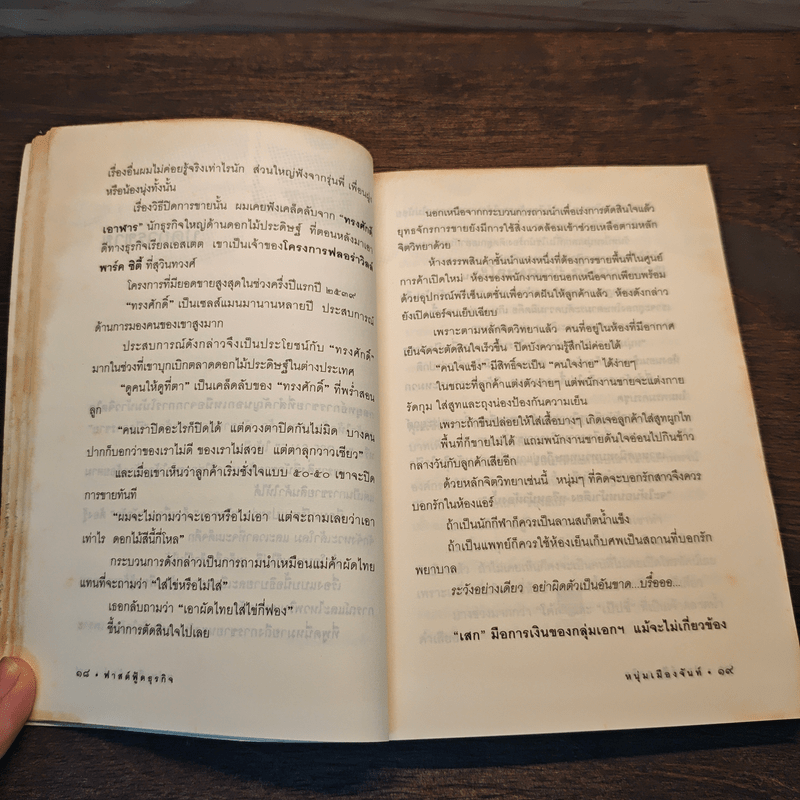 เรื่องอื่นผมไม่ค่อยรู้จริงเท่าไรนัก ส่วนใหญ่ฟังจากรุ่นพี่ เพื่อนฝูง
หรือน้องนุ่งทั้งนั้น
เรื่องวิธีปิดการขายนั้น ผมเคยฟังเคล็ดลับจาก “ทรงศักดิ์
เอาฬาร” นักธุรกิจใหญ่ด้านดอกไม้ประดิษฐ์ ที่ตอนหลังมาเอา
ดีทางธุรกิจเรียลเอสเตต เขาเป็นเจ้าของโครงการฟลอร่าวิลล์
พาร์ค ซิตี้ ที่สุวินทวงศ์
โครงการที่มียอดขายสูงสุดในช่วงครึ่งปีแรกปี ๒๕๓๙
“ทรงศักดิ์” เป็นเซลส์แมนมานานหลายปี ประสบการณ์
ด้านการมองคนของเขาสูงมาก
ประสบการณ์ดังกล่าวจึงเป็นประโยชน์กับ “ทรงศักดิ์”
มากในช่วงที่เขาบุกเบิกตลาดดอกไม้ประดิษฐ์ในต่างประเทศ
“ดูคนให้ดูที่ตา” เป็นเคล็ดลับของ “ทรงศักดิ์” ที่พร่ำสอน
ลูก
“คนเราปิดอะไรก็ปิดได้ แต่ดวงตาปิดกันไม่มิด บางคน
ปากก็บอกว่าของเราไม่ดี ของเราไม่สวย แต่ตาลุกวาวเชียว”
และเมื่อเขาเห็นว่าลูกค้าเริ่มชั่งใจแบบ ๕๐-๕๐ เขาจะปิด
การขายทันที
“ผมจะไม่ถามว่าจะเอาหรือไม่เอา แต่จะถามเลยว่าเอา
เท่าไร ดอกไม้สีนี้กี่โหล”
กระบวนการดังกล่าวเป็นการถามนำเหมือนแม่ค้าผัดไทย
แทนที่จะถามว่า “ใส่ไข่หรือไม่ใส่”
เธอกลับถามว่า “เอาผัดไทยใส่ไข่กี่ฟอง”
ชี้นำการตัดสินใจไปเลย
๑๘ • ฟาสต์ฟู้ดธุรกิจ
นอกเหนือจากกระบวนการถามนำเพื่อเร่งการตัดสินใจแล้ว
ยุทธจักรการขายยังมีการใช้สิ่งแวดล้อมเข้าช่วยเหลือตามหลัก
จิตวิทยาด้วย
ห้างสรรพสินค้าชั้นนำแห่งหนึ่งที่ต้องการขายพื้นที่ในศูนย์
การค้าเปิดใหม่ ห้องของพนักงานขายนอกเหนือจากเพียบพร้อม
ด้วยอุปกรณ์พรีเซ็นเตชั่นเพื่อวาดฝันให้ลูกค้าแล้ว ห้องดังกล่าว
ยังเปิดแอร์จนเย็นเฉียบ
เพราะตามหลักจิตวิทยาแล้ว คนที่อยู่ในห้องที่มีอากาศ
เย็นจัดจะตัดสินใจเร็วขึ้น ปิดบังความรู้สึกไม่ค่อยได้
“คนใจแข็ง” มีสิทธิ์จะเป็น “คนใจง่าย” ได้ง่ายๆ
ในขณะที่ลูกค้าแต่งตัวง่ายๆ แต่พนักงานขายจะแต่งกาย
รัดกุม ใส่สูทและถุงน่องป้องกันความเย็น
เพราะถ้าขืนปล่อยให้ใส่เสื้อบางๆ เกิดเจอลูกค้าใส่สูทผูกไท
พื้นที่ก็ขายไม่ได้ แถมพนักงานขายดันใจอ่อนไปกินข้าว
กลางวันกับลูกค้าเสียอีก
ด้วยหลักจิตวิทยาเช่นนี้ หนุ่มๆ ที่คิดจะบอกรักสาวจึงควร
บอกรักในห้องแอร์
ถ้าเป็นนักกีฬาก็ควรเป็นลานสเก็ตน้ำแข็ง
ถ้าเป็นแพทย์ก็ควรใช้ห้องเย็นเก็บศพเป็นสถานที่บอกรัก
พยาบาล
ระวังอย่างเดียว อย่าผิดตัวเป็นอันขาด...บรื๋อออ...
“เสก” มือการเงินของกลุ่มเอกฯ แม้จะไม่เกี่ยวข้อง
หนุ่มเมืองจันท์ • ๑๙